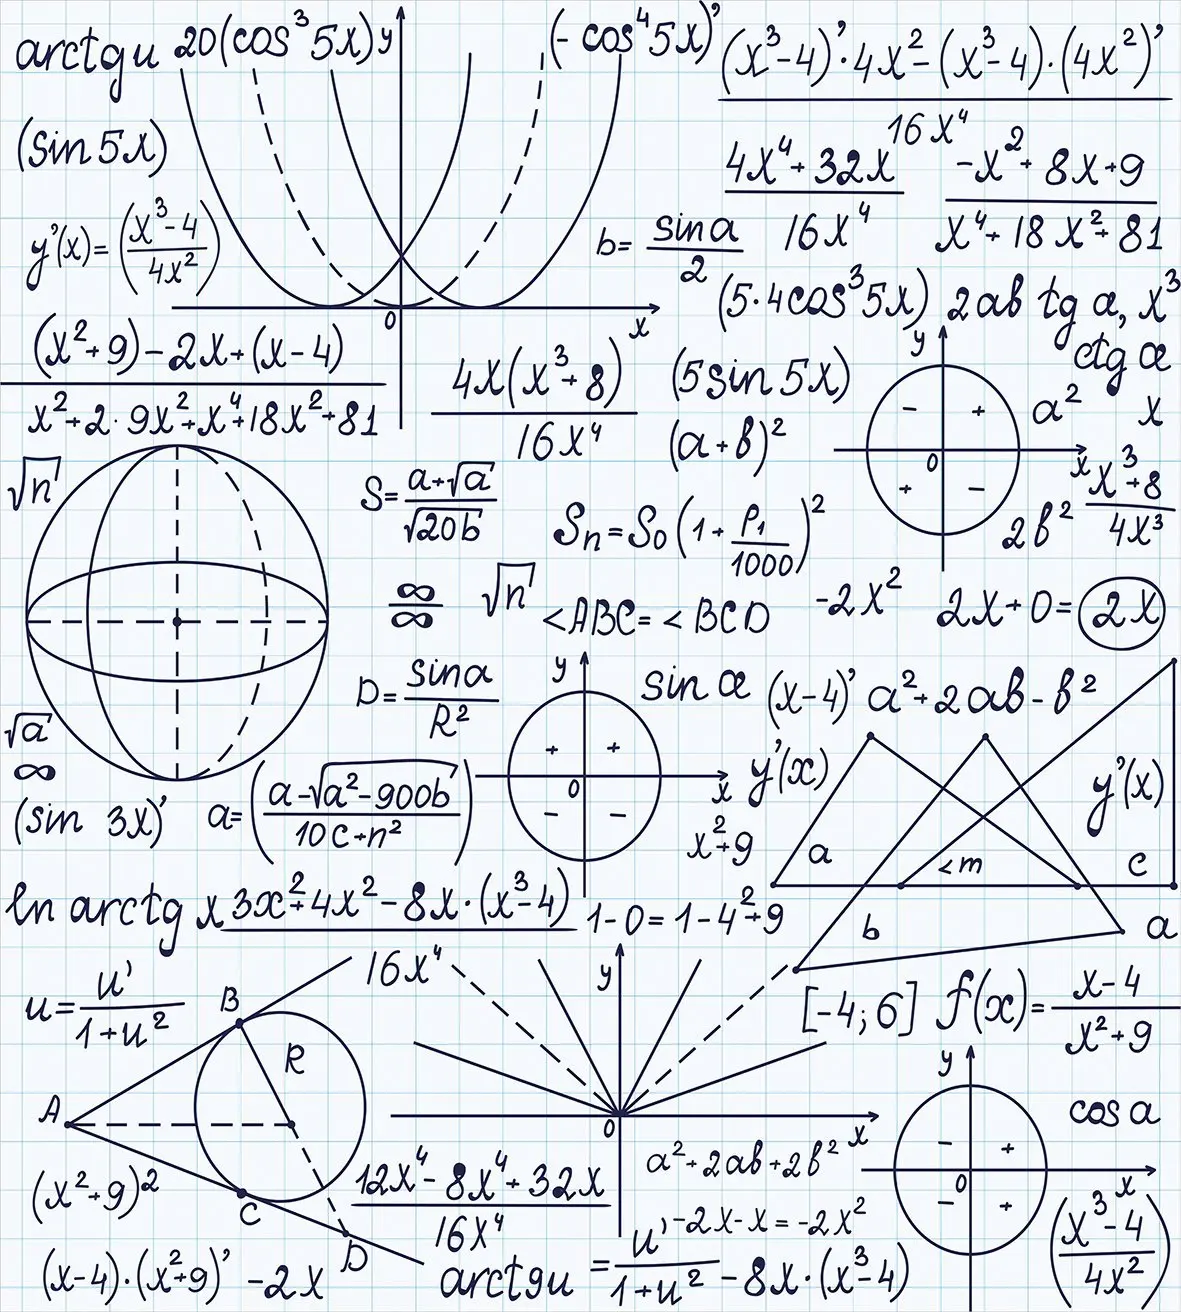 arctgu 20(cos³5x)y (-cos⁴5x)’
(x³-4)’·4x²-(x³-4)·(4x²)’
16x⁴
(sin 5x)
4x⁴+32x
16x⁴
-x²+8x+9
x⁴+18x²+81
y’(x)=(x³-4 / 4x²)
b= sina / 2
(5·4cos³5x) 2ab tg a, x³
0 x
y ctg æ
(x²+9)-2x+(x-4)
x²+2·9x²+x⁴+18x²+81
4x(x³+8)
16x⁴
(5sin 5x)
(a+b)²
- + a² x
0 x
+ -
√n
S= a+√a / √20b
Sn=S0(1+ P₁/1000)²
2b²
x³+8
4x³
∞
∞
√n
<ABC=<BCD
-2x² 2x+0=2x
D= sina / R²
y
sin æ (x-4)’ a²+2ab-b²
+ +
0 x
- -
y’(x)
y’(x)
√a
∞
(sin 3x)’
a=(a-√a²-900b / 10c+n²)
x²+9
a <m c
b a
ln arctg x
3x²+4x²-8x·(x³-4)
16x⁴
1-0=1-4²+9
u= u’ / 1+u²
B
R
A
C
D
y
0 x
[-4;6] f(x)= x-4 / x²+9
y
cos a
- +
0 x
- +
(x²+9)²
12x⁴-8x⁴+32x
16x⁴
a²+2ab+2b²
-2x-x=-2x²
(x³-4 / 4x²)
(x-4)·(x²+9)’ -2x
arctgu = u’ / 1+u² -8x·(x³-4)